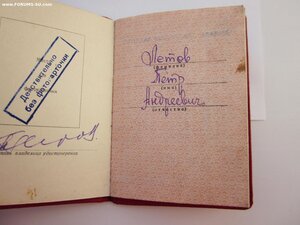 © www.FORUMS-SU.com
Действительно
без фото-карточки
владельца удостоверения
Петов
(фамилия)
Петр
(имя)
Андреевич
(отчество)